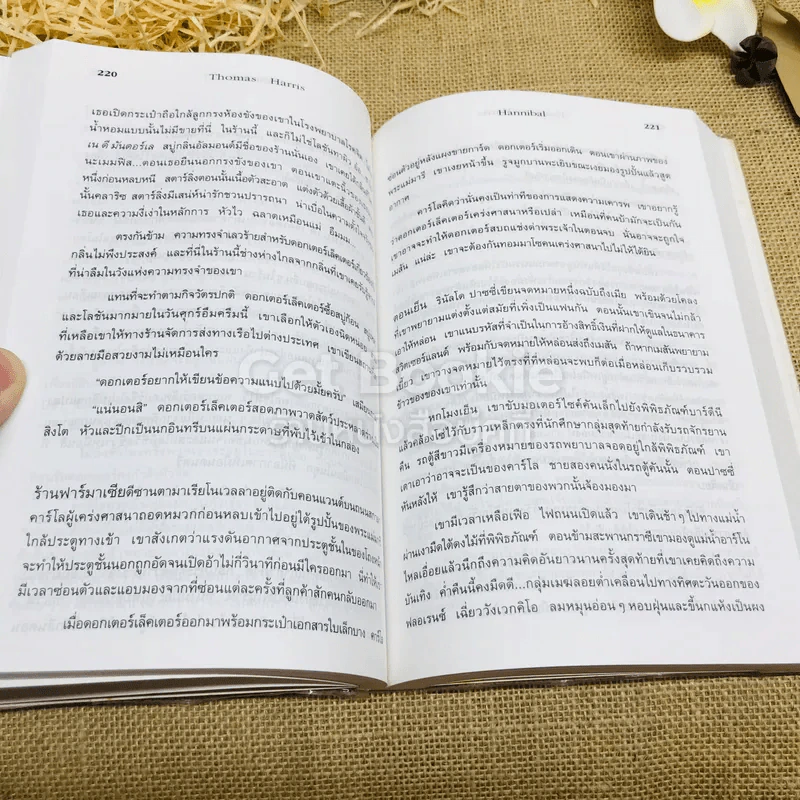 220
Thomas Harris
เธอเปิดกระเป๋าถือใกล้ลูกกรงห้องขังของเขาในโรงพยาบาลโรค
น้ำหอมแบบนั้นไม่มีขายที่นี่ ในร้านนี้ และก็ไม่ใช่โลชั่นทาผิว
เน ดี มันดอร์เล สบู่กลิ่นอัลมอนด์มีชื่อของร้านนั่นเอง เขาเคยได้กลิ่น
นะเมมฟิส...ตอนเธอยืนนอกกรงขังของเขา ตอนเขาแตะนิ้ว
หนึ่งก่อนหลบหนี สตาร์ลิ่งตอนนั้นเนื้อตัวสะอาด แต่งตัวด้วยเสื้อผ้า
นั้นคลาริซ สตาร์ลิ่งมีเสน่ห์น่ารักชวนปรารถนา น่าเบื่อในความ
เธอและความงี่เง่าในหลักการ หัวไว ฉลาดเหมือนแม่ อืมมม
ตรงกันข้าม ความทรงจำเลวร้ายสำหรับดอกเตอร์เล็คเตอร์เกี่ยว
กลิ่นไม่พึงประสงค์ และที่นี่ในร้านนี้ช่างห่างไกลจากกลิ่นที่เขาเคย
ที่น่าลืมในวังแห่งความทรงจำของเขา
แทนที่จะทำตามกิจวัตรปกติ ดอกเตอร์เล็คเตอร์ซื้อสบู่ก้อน
และโลชั่นมากมายในวันศุกร์อึมครึมนี้ เขาเลือกให้ตัวเองนิดหน่อย
ที่เหลือเขาให้ทางร้านจัดการส่งทางเรือไปต่างประเทศ เขาเขียน
ด้วยลายมือสวยงามไม่เหมือนใคร
“ดอกเตอร์อยากให้เขียนข้อความแนบไปด้วยมั้ยครับ”
“แน่นอนสิ” ดอกเตอร์เล็คเตอร์สอดภาพวาดสัตว์ประหลาด
สิงโต หัวและปีกเป็นนกอินทรีบนแผ่นกระดาษที่พับไว้เข้าในกล่อง
ร้านฟาร์มาเซียดีซานตามาเรียโนเวลลาอยู่ติดกับคอนแวนต์บนถนน
คาร์โลผู้เคร่งศาสนาถอดหมวกก่อนหลบเข้าไปอยู่ใต้รูปปั้นของพระแม่
ใกล้ประตูทางเข้า เขาสังเกตว่าแรงดันอากาศจากประตูชั้นในของโถง
จะทำให้ประตูชั้นนอกถูกอัดจนเปิดอ้าไม่กี่วินาทีก่อนมีใครออกมา นี่ทำให้
มีเวลาซ่อนตัวและแอบมองจากที่ซ่อนแต่ละครั้งที่ลูกค้าสักคนกลับออกมา
เมื่อดอกเตอร์เล็คเตอร์ออกมาพร้อมกระเป๋าเอกสารใบเล็กบาง
Hannibal
221
ซ่อนตัวอยู่หลังแผงขายการ์ด ดอกเตอร์เริ่มออกเดิน ตอนเขาผ่านภาพของ
พระแม่มารี เขาเงยหน้าขึ้น รูจมูกบานพะเยิบขณะเงยมองรูปปั้นแล้วสูด
อากาศ
คาร์โลคิดว่านั่นคงเป็นท่าทีของการแสดงความเคารพ เขาอยากรู้
ว่าดอกเตอร์เล็คเตอร์เคร่งศาสนาหรือเปล่า เหมือนที่คนบ้ามักจะเป็นกัน
เขาอาจจะทำให้ดอกเตอร์สบถแช่งด่าพระเจ้าในตอนจบ นั่นอาจจะถูกใจ
เมสัน แน่ล่ะ เขาจะต้องกันทอมมาโซคนเคร่งศาสนาไปไม่ให้ได้ยิน
ตอนเย็น รินัลโด ปาซซี่เขียนจดหมายหนึ่งฉบับถึงเมีย พร้อมด้วยโคลง
ที่เขาพยายามแต่งตั้งแต่สมัยที่เพิ่งเป็นแฟนกัน ตอนนั้นเขาเขินจนไม่กล้า
เอาให้หล่อน เขาแนบรหัสที่จำเป็นในการอ้างสิทธิ์เงินที่ฝากให้ดูแลในธนาคาร
สวิตเซอร์แลนด์ พร้อมกับจดหมายให้หล่อนส่งถึงเมสัน ถ้าหากเมสันพยายาม
เบี้ยว เขาวางจดหมายไว้ตรงที่ที่หล่อนจะพบก็ต่อเมื่อหล่อนเก็บรวบรวม
ข้าวของของเขาเท่านั้น
หกโมงเย็น เขาขับมอเตอร์ไซค์คันเล็กไปยังพิพิธภัณฑ์บาร์ดีนี
แล้วคล้องโซ่ไว้กับราวเหล็กตรงที่นักศึกษากลุ่มสุดท้ายกำลังรับรถจักรยาน
คืน รถตู้สีขาวมีเครื่องหมายของรถพยาบาลจอดอยู่ใกล้พิพิธภัณฑ์ เขา
เดาเอาว่าอาจจะเป็นของคาร์โล ชายสองคนนั่งในรถตู้คันนั้น ตอนปาซซี่
หันหลังให้ เขารู้สึกว่าสายตาของพวกนั้นจ้องมองมา
เขามีเวลาเหลือเฟือ ไฟถนนเปิดแล้ว เขาเดินช้าๆ ไปทางแม่น้ำ
ผ่านเงามืดใต้ดงไม้ที่พิพิธภัณฑ์ ตอนข้ามสะพานกราซี่เขามองดูแม่น้ำอาร์โน
ไหลเอื่อยแล้วนึกถึงความคิดอันยาวนานครั้งสุดท้ายที่เขาเคยคิดถึงความ
บันเทิง ค่ำคืนนี้คงมืดดี...กลุ่มเมฆลอยต่ำเคลื่อนไปทางทิศตะวันออกของ
ฟลอเรนซ์ เฉี่ยววังเวกคิโอ ลมหมุนอ่อนๆ หอบฝุ่นและขี้นกแห้งเป็นผง
Get Bookie